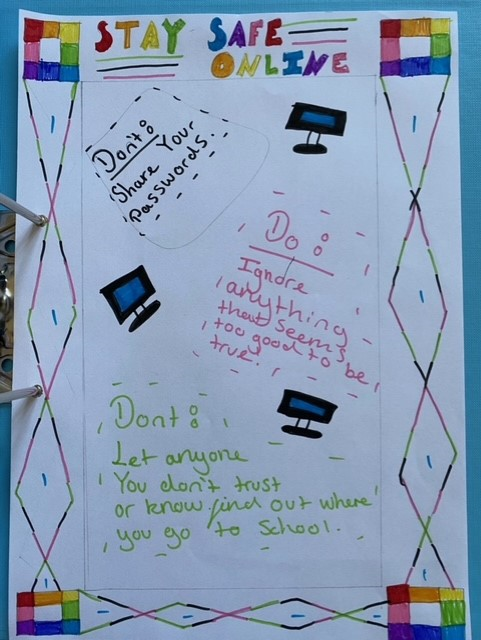 STAY SAFE
ONLINE
Don't:
Share Your
passwords.
Do:
Ignore
anything
that seems
too good to be
true!
Dont:
Let anyone
You don't trust
or know find out where
you go to School.